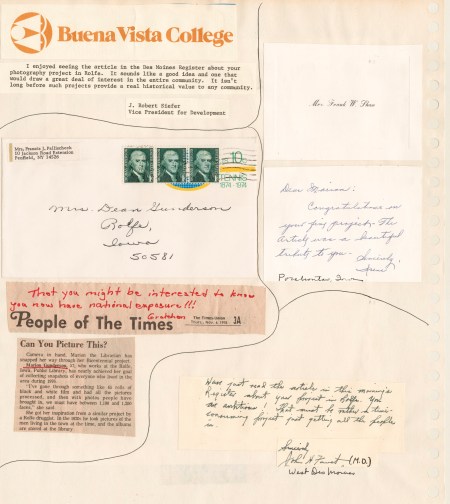 Buena Vista College
I enjoyed seeing the article in the Des Moines Register about your
photography project in Rolfe. It sounds like a good idea and one that
would draw a great deal of interest in the entire community. It isn't
long before such projects provide a real historical value to any community.
J. Robert Siefer
Vice President for Development
Mrs. Frank W. Shaw
Mrs. Francis J.
92 Jackson Road Extension
Penfield, NY 14526
10
TENNIS
1874-1974
Mrs. Dean Gunderson
Rolfe,
Iowa
50581
Dear Marion:
Congratulations on
your fine project. The
article was a beautiful
tribute to you.
Sincerely,
Pocahontas, Iowa
That you might be interested to know
you now have national exposure!!!
Gretchen
People of The Times
3A
Can You Picture This?
Camera in hand, Marion the Librarian has
snapped her way through her Bicentennial project.
Marion Gunderson, 57, who works at the Rolfe,
Iowa, Public Library, has nearly achieved her goal
of collecting snapshots of everyone who lived in the
area during 1976.
"I've gone through something like 25 rolls of
black and white film and had all the pictures
processed, and then with photos people have
brought in, we must have between 1,200 and 1,500
faces," she said.
She got her inspiration from a similar project by
a Rolfe druggist. In the 1930s he took pictures of the
men living in the town at the time, and the albums
are stored at the library.
Have just read the article in this morning's
Register about your project in Rolfe. You
are ambitious! That must be rather a time-
consuming project just getting all the people
in.
Sincerely,
John H. (M.D.)
West Des Moines